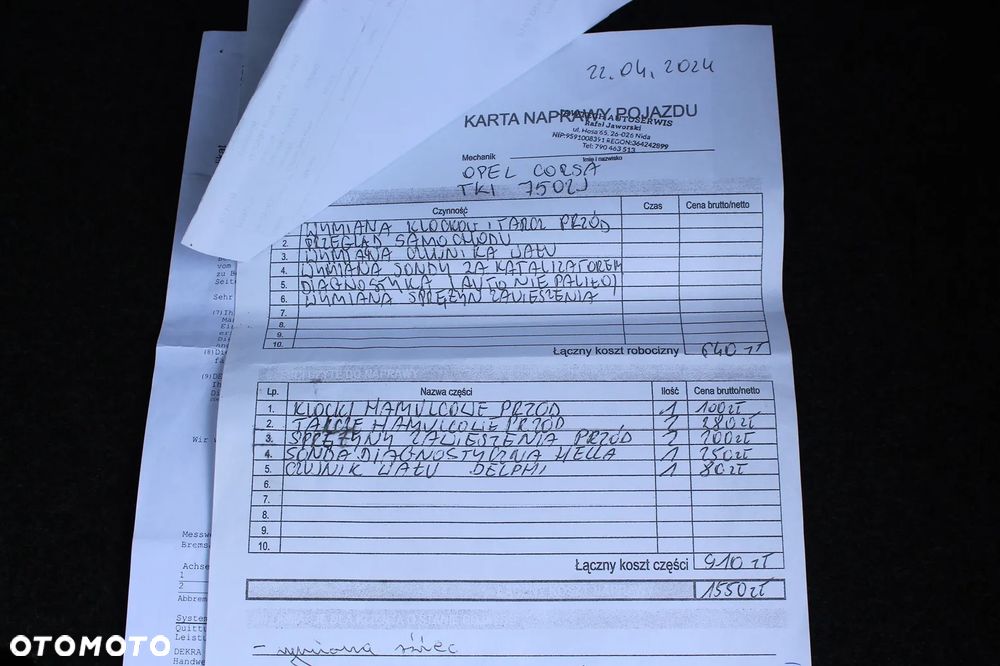 22.04.2024
KARTA NAPRAWY POJAZDU
AUTOSERWIS
Rafał Jaworski
ul. Hosa 65, 26-026 Nida
NIP:9591008391 REGON:364242899
Tel: 790 463 513
Mechanik
Imię i nazwisko
OPEL CORSA
TKI 7502J
Czynność Czas Cena brutto/netto
WYMIANA KLOCKOW I TARCZ PRZÓD
2. PRZEGLĄD SAMOCHODU
3. WYMIANA CZUJNIKA WAŁU
4. WYMIANA SONDY ZA KATALIZATOREM
5. DIAGNOSTYKA (AUTO NIE PALIŁO)
6. WYMIANA SPRĘŻYN ZAWIESZENIA
7.
8.
9.
10.
Łączny koszt robocizny 640 zł
UŻYTE DO NAPRAWY
Lp. Nazwa części Ilość Cena brutto/netto
1. KLOCKI HAMULCOWE PRZÓD 1 100zł
2. TARCZE HAMULCOWE PRZÓD 2 280zł
3. SPRĘŻYNY ZAWIESZENIA PRZÓD 2 200zł
4. SONDA DIAGNOSTYCZNA HELLA 1 250zł
5. CZUJNIK WAŁU DELPHI 1 80zł
6.
7.
8.
9.
10.
Łączny koszt części 910 zł
1550zł
- wymiana świec
vom
zu B
Seit
Sehr
(7)Ih
Ei
(8)Di
(9)DE
Ih
Di
Wir
Messwe
Brems
Achse
1
2
Abbrem
System
Quittu
Leistu
DEKRA
Handwe
OTOMOTO